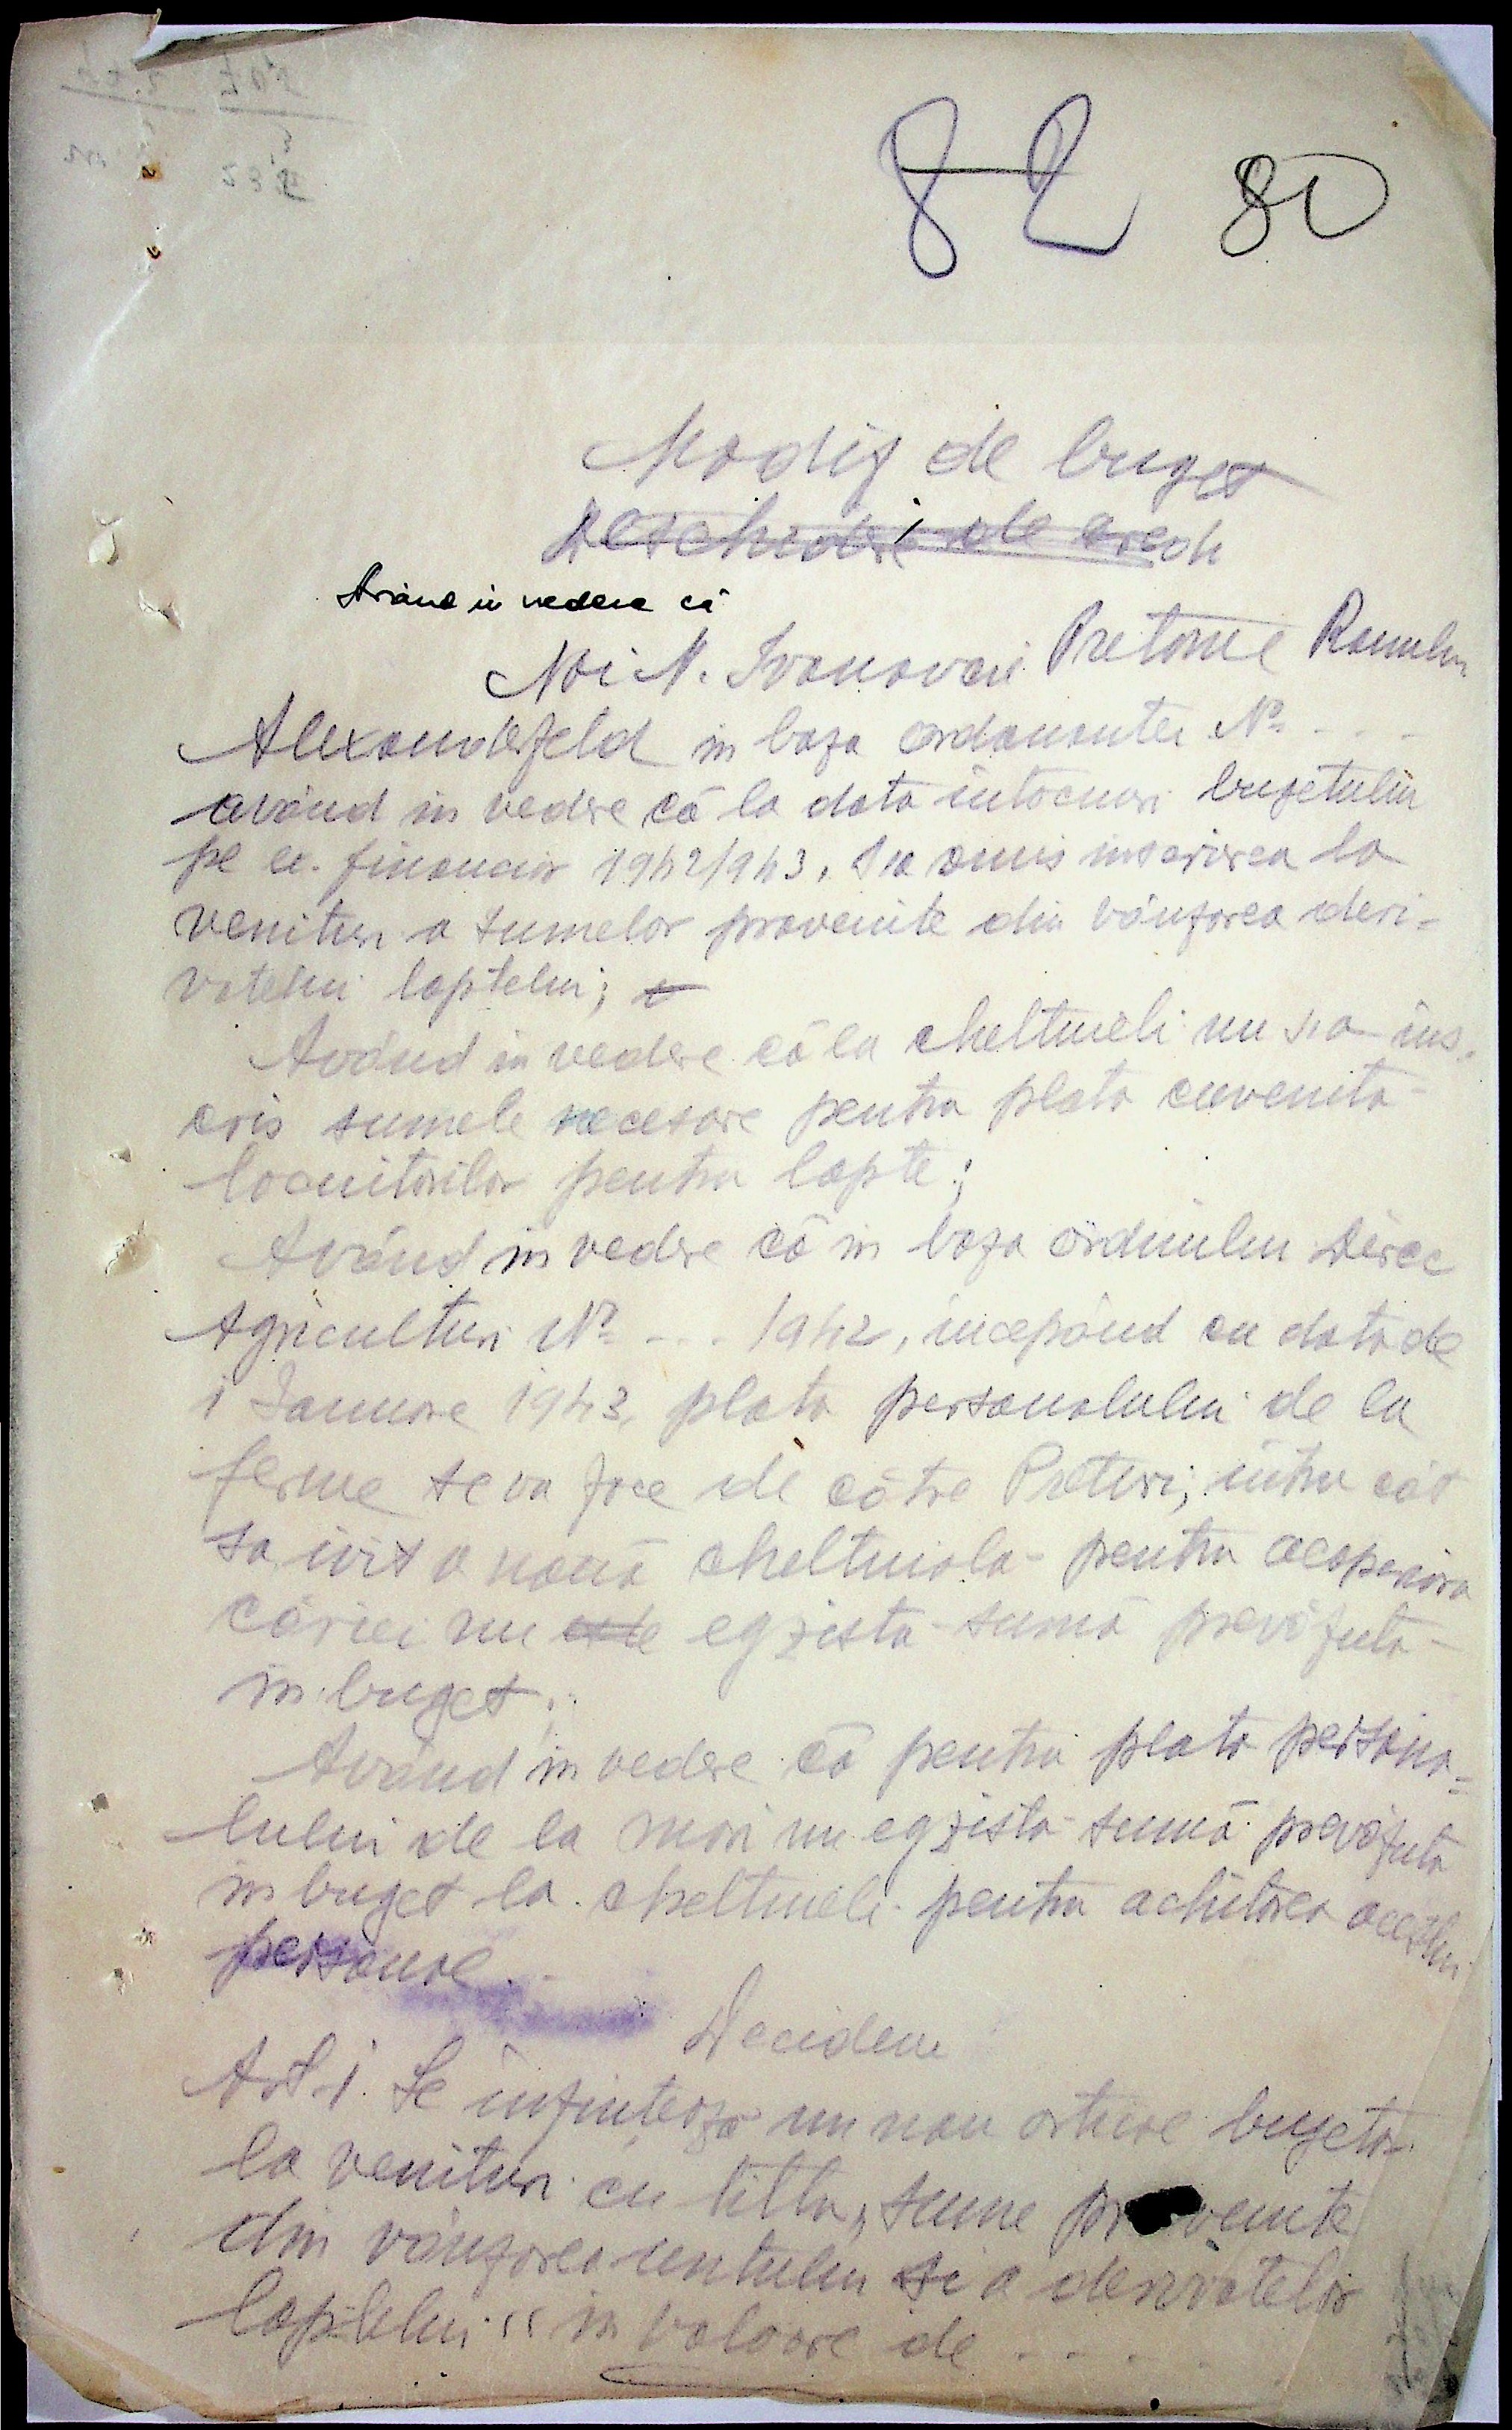 82 80
Modif de buget
Deschidere de cred
Având in vedere că
Noi N. Ivanovici Pretorul Raionului
Alexanderfeld in baza ordonantei No - - -
având in vedere că la data intocmiri bugetului
pe ex. financiar 1942/943, s'a omis inscrierea la
venituri a sumelor provenite din vânzarea deri-
vatelui laptelui;
Având in vedere că la cheltueli nu s'a ins-
cris sumele necesare pentru plata cuvenita
locuitorilor pentru lapte;
Având in vedere că in baza ordinului Direc
Agriculturi No - - . 1942, incepând cu data de
1 Ianuare 1943, plata personalului de la
ferme se va face de către Preturi; intru cât
sa ivit o nouă cheltuiala pentru acoperirea
căriei nu este egzista sumă prevăzuta
in buget;
Având in vedere că pentru plata persona-
lului de la mori nu egzista sumă prevăzuta
in buget la cheltueli pentru achitarea acestui
personal.
Decidem
Art 1. Se infiintează un nou articol bugetar
la venituri cu titlu „sume provenite
din vânzarea untului si a derivatelor
laptelui" in valoare de - - - -